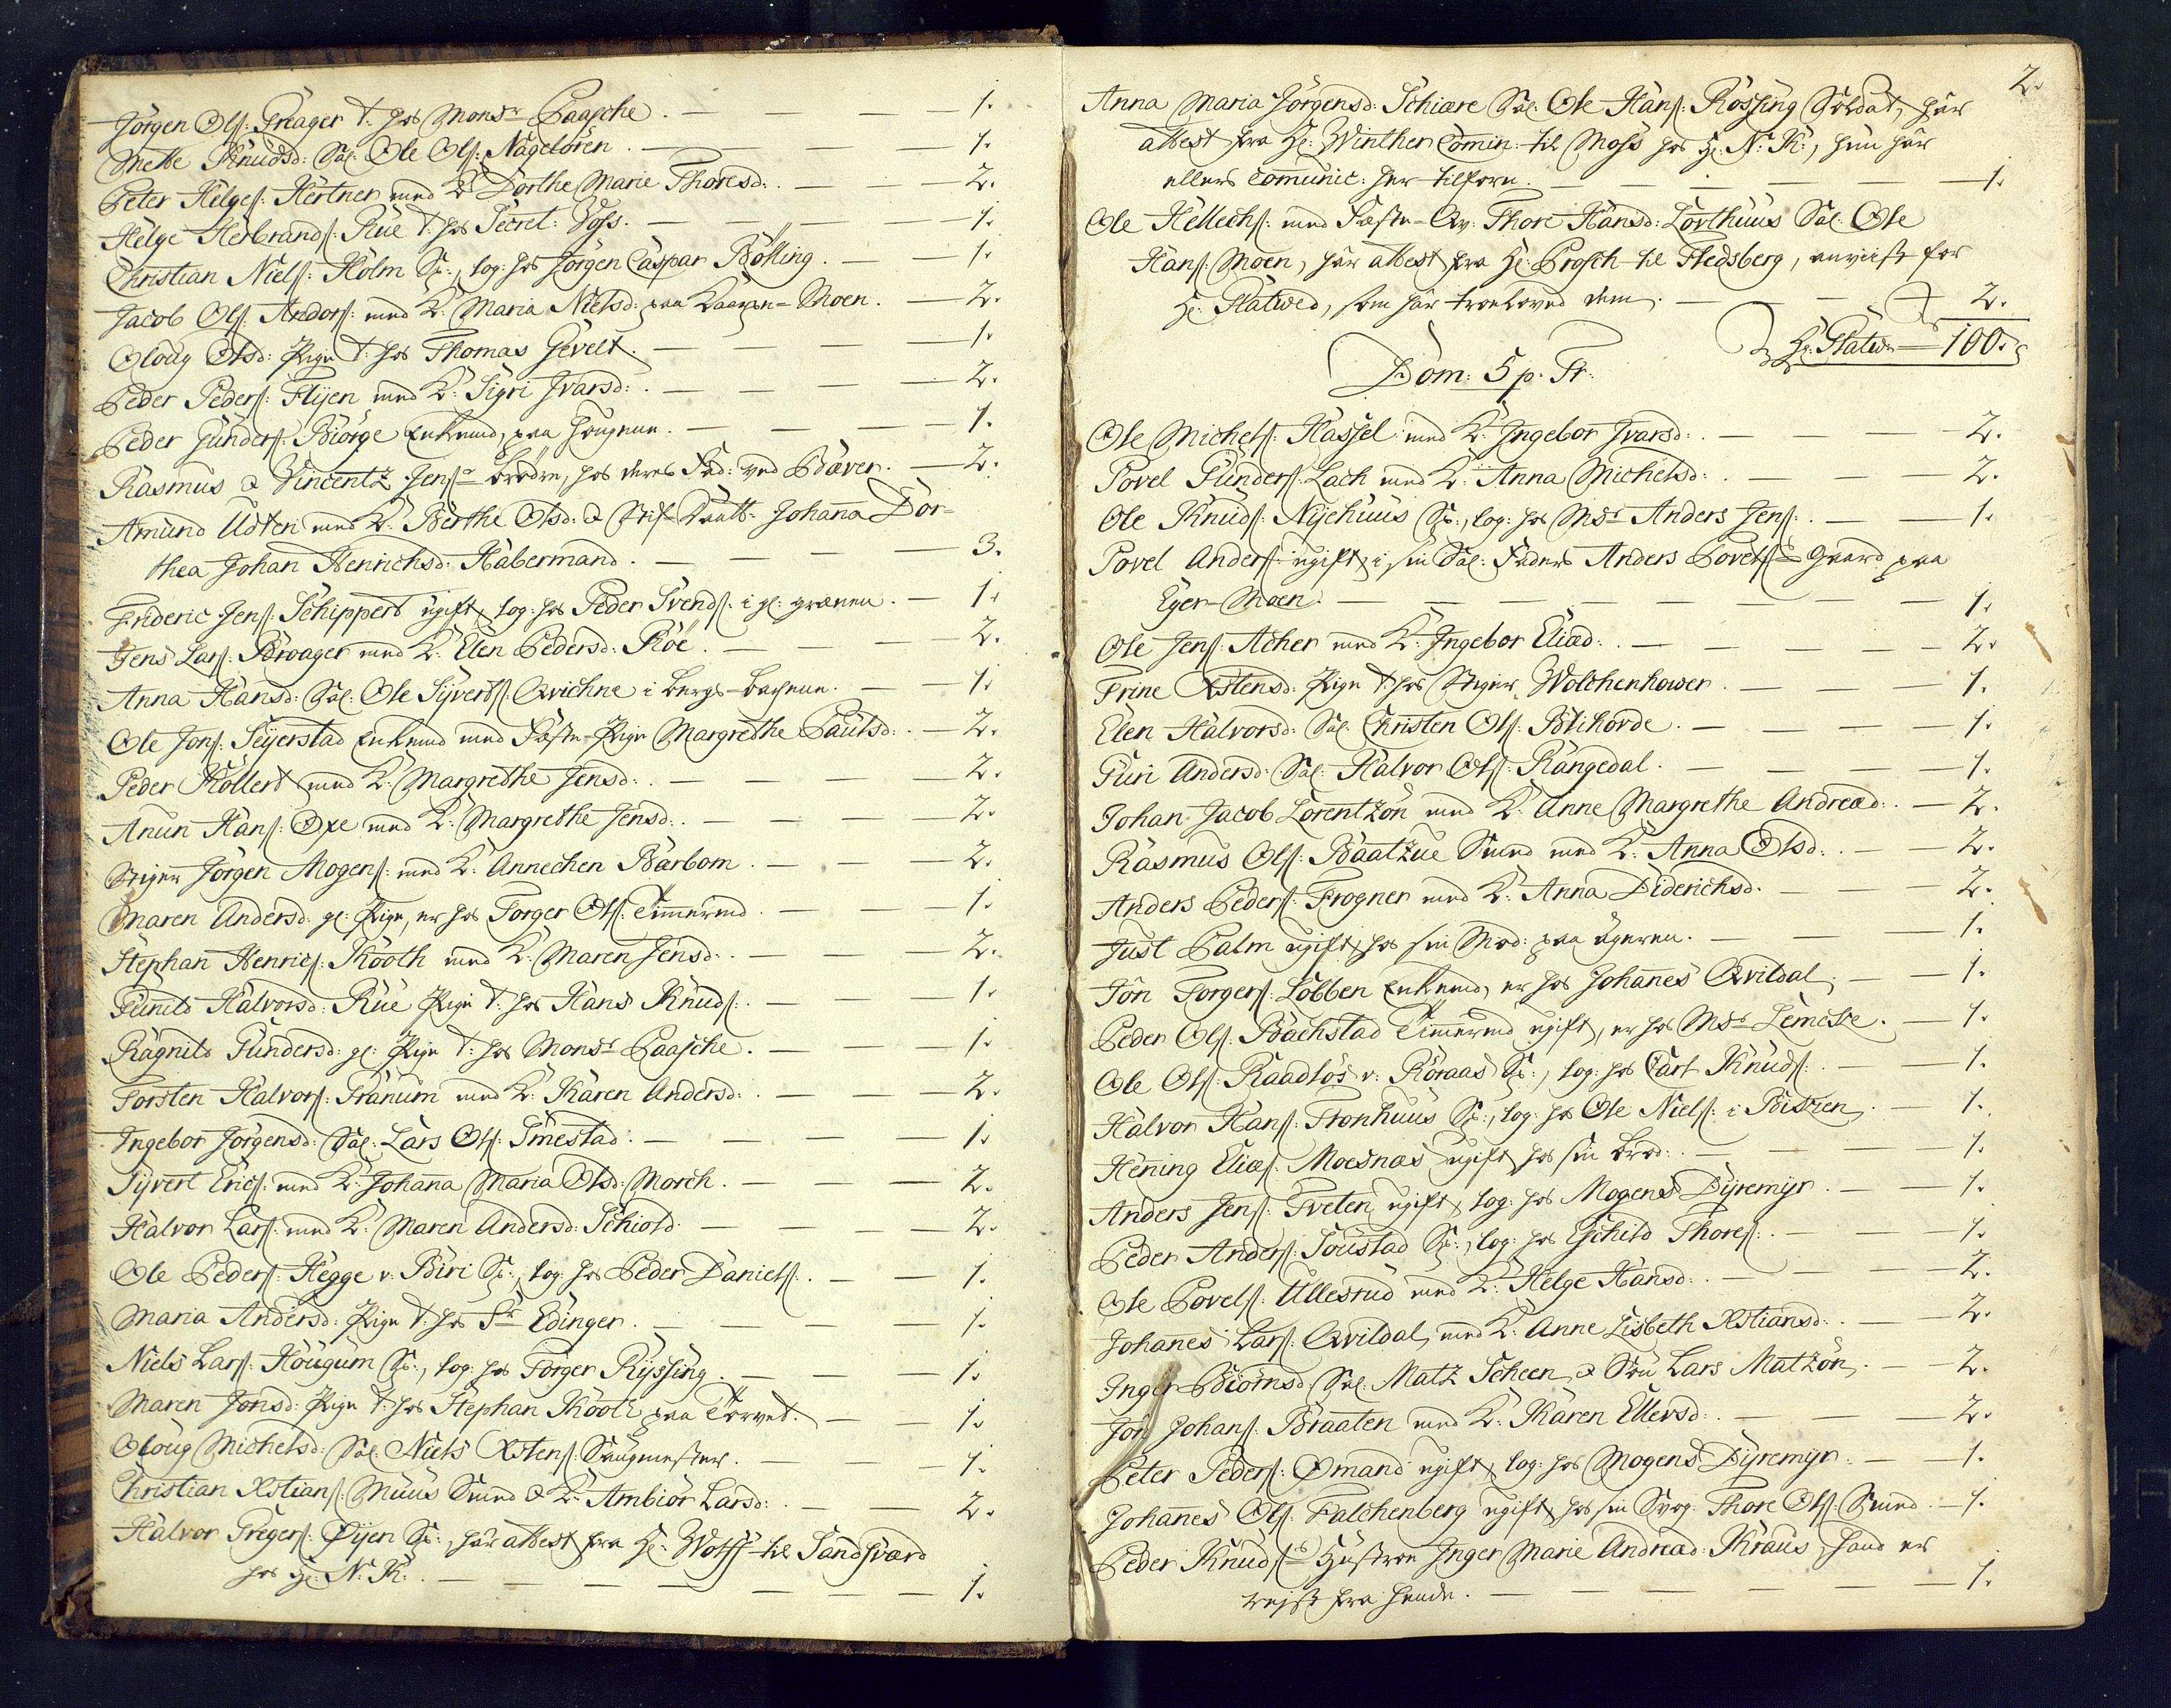 Jörgen Ols: Præager t: hos Monsr Paasche. — 1.
Mette Knudsd: Sal: Ole Ols: Nageloren. — 1.
Peter Helges: Hertner med K: Dorthe Marie Thoresd: — 2.
Helge Herbrands: Rue t: hos Secret: Voss. — 1.
Christian Niels: Holm Sp:, log: hos Jörgen Caspar Bölling. — 1.
Jacob Ols: Andors: med K: Maria Nielsd: paa Moen. — 2.
Oloug Olsd: Pige t: hos Thomas Gevelt. — 1.
Peder Peders: Flijen med K: Sigri Ivarsd: — 2.
Peder Gunders: Biörge Enkemd, paa Hougene. — 1.
Rasmus & Vincentz Jens: brödre, hos deres Fad: ved Bæver. — 2.
Amund Udten med K: Berthe Olsd: & Stif-Datt: Johanna Dor-
thea Johan Henrichsd: Habermand. — 3.
Frideric Jens: Schippert ugift, log: hos Peder Svends: i gl: grænen. — 1.
Jens Lars: Broager med K: Elen Pedersd: Röe. — 2.
Anna Hansd: Sal: Ole Syverts: Qvichne i bergs-bachene. — 1.
Ole Jons: Seyerstad Enkemd med Fæste-Pige Margrethe Paulsd: — 2.
Peder Kollert med K: Margrethe Jensd: — 2.
Anun Hans: Oxe med K: Margrethe Jensd: — 2.
Stiger Jörgen Mogens: med K: Annechen Barbom. — 2.
Maren Andersd: gl: Pige, er hos Torger Ols: Timermd. — 1.
Stephan Henrics: Kooth med K: Maren Jensd: — 2.
Gunild Halvorsd: Rue Pige t: hos Hans Knuds: — 1.
Ragnild Gundersd: gl: Pige t: hos Monsr Paasche. — 1.
Torsten Halvors: Tranum med K: Karen Andersd: — 2.
Ingebor Jörgensd: Sal: Lars Ols: Smestad. — 1.
Syvert Erics: med K: Johanna Maria Olsd: Morch. — 2.
Halvor Lars: med K: Maren Andersd: Schiold. — 2.
Ole Peders: Hegge v: Biri Sp:, log: hos Peder Daniels: — 1.
Maria Andersd: Pige t: hos Sr Edinger. — 1.
Niels Lars: Hougum Sp:, log: hos Torger Ryssing. — 1.
Maren Jonsd: Pige t: hos Stephan Kooth paa Torvet. — 1.
Oloug Michelsd: Sal: Niels Xstens: Saugmester. — 1.
Christian Xstians: Muus Smed & K: Ambior Larsd: — 2.
Halvor Gregers: Öyen Sp:, har attest fra Hr: Wolff til Sandsværd
hos Hr: N: K: — 1.
2.
Anna Maria Jörgensd: Schiære Sal: Ole Hans: Rössing Soldat, har
attest fra Hr: Winther Comin: til Moss hos Hr: N: K:, hun har
ellers comunic: her tilforn. — 1.
Ole Hellechs: med Fæste-Qv: Thore Hansd: Lorthuus Sal: Ole
Hans: Moen, har attest fra Hr: Brosch til Flesberg, anviist for
Hr: Flatved, som har troeloved dem. — 2.
Hr: Flatved — 100.
Dom: 5 p. Tr.
Ole Michels: Hassel med K: Ingebor Ivarsd: — 2.
Povel Gunders: Lach med K: Anna Michelsd: — 2.
Ole Knuds: Nyehuus Sp:, log: hos Msr Anders Jens: — 1.
Povel Anders: ugift, i sin Sal: Faders Anders Povels: Gaard paa
Eger-Moen. — 1.
Ole Jens: Acher med K: Ingebor Eliæd: — 2.
Trine Xstensd: Pige t: hos Stiger Wolchenhower. — 1.
Elen Halvorsd: Sal: Christen Ols: Blihovde. — 1.
Guri Andersd: Sal: Halvor Ols: Rangedal. — 1.
Johan Jacob Lorentzön med K: Anne Margrethe Andreæd: — 2.
Rasmus Ols: Baatzue Smed med K: Anna Olsd: — 2.
Anders Peders: Frogner med K: Anna Diderichsd. — 2.
Just Palm ugift, hos sin Mod: paa Ageren. — 1.
Jon Torgers: Lobben Enkemd, er hos Johanes Qvildal. — 1.
Peder Ols: Bachstad Timermd ugift, er hos Msr Lemeste. — 1.
Ole Ols: Raadlös v: Röraas Sp:, log: hos Carl Knuds: — 1.
Halvor Hans: Tronhuus Sp:, log: hos Ole Niels: i Bissen. — 1.
Hening Eliæs: Moesnas ugift, hos sin brod: — 1.
Anders Jens: Tveten ugift, log: hos Mogens Dyremyr. — 1.
Peder Anders: Soustad Sp:, log: hos Eschild Thores: — 1.
Ole Povels: Ullesrud med K: Helge Hansd: — 2.
Johanes Lars: Qvildal, med K: Anne Lisbeth Xstiansd: — 2.
Inger Biörnsd: Sal: Matz Scheen, & Sön Lars Matzön. — 2.
Jon Johans: Braaten med K: Karen Ellevsd: — 2.
Peter Peders: Ömand ugift, log: hos Mogens Dyremyr. — 1.
Johanes Ols: Falchenberg ugift, hos sin Svog: Thore Ols: Smed. — 1.
Peder Knuds: Hustroe Inger Marie Andreæd: Kraus, hand er
rejst fra hende. — 1.